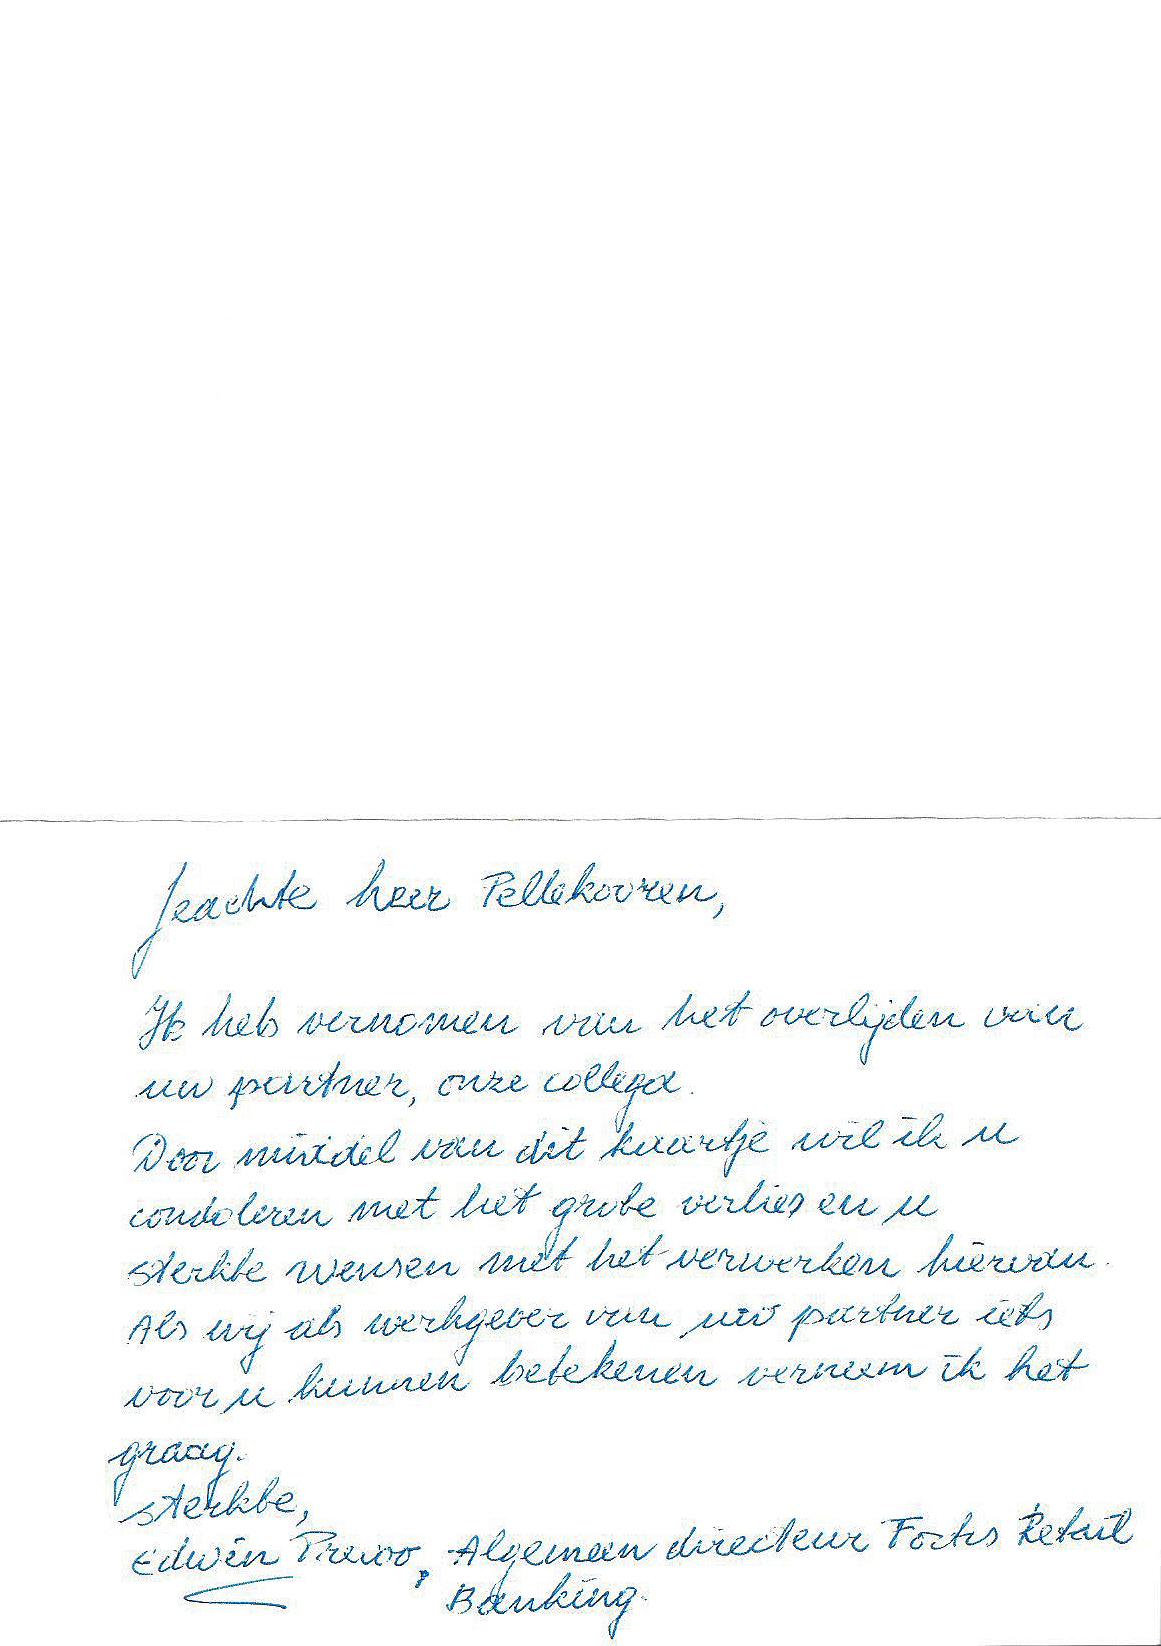 Geachte heer Pellekooren,
Ik heb vernomen van het overlijden van
uw partner, onze collega.
Door middel van dit kaartje wil ik u
condoleren met het grote verlies en u
sterkte wensen met het verwerken hiervan.
Als wij als werkgever van uw partner iets
voor u kunnen betekenen verneem ik het
graag.
sterkte,
Edwin Prevoo, Algemeen directeur Fortis Retail
Banking.